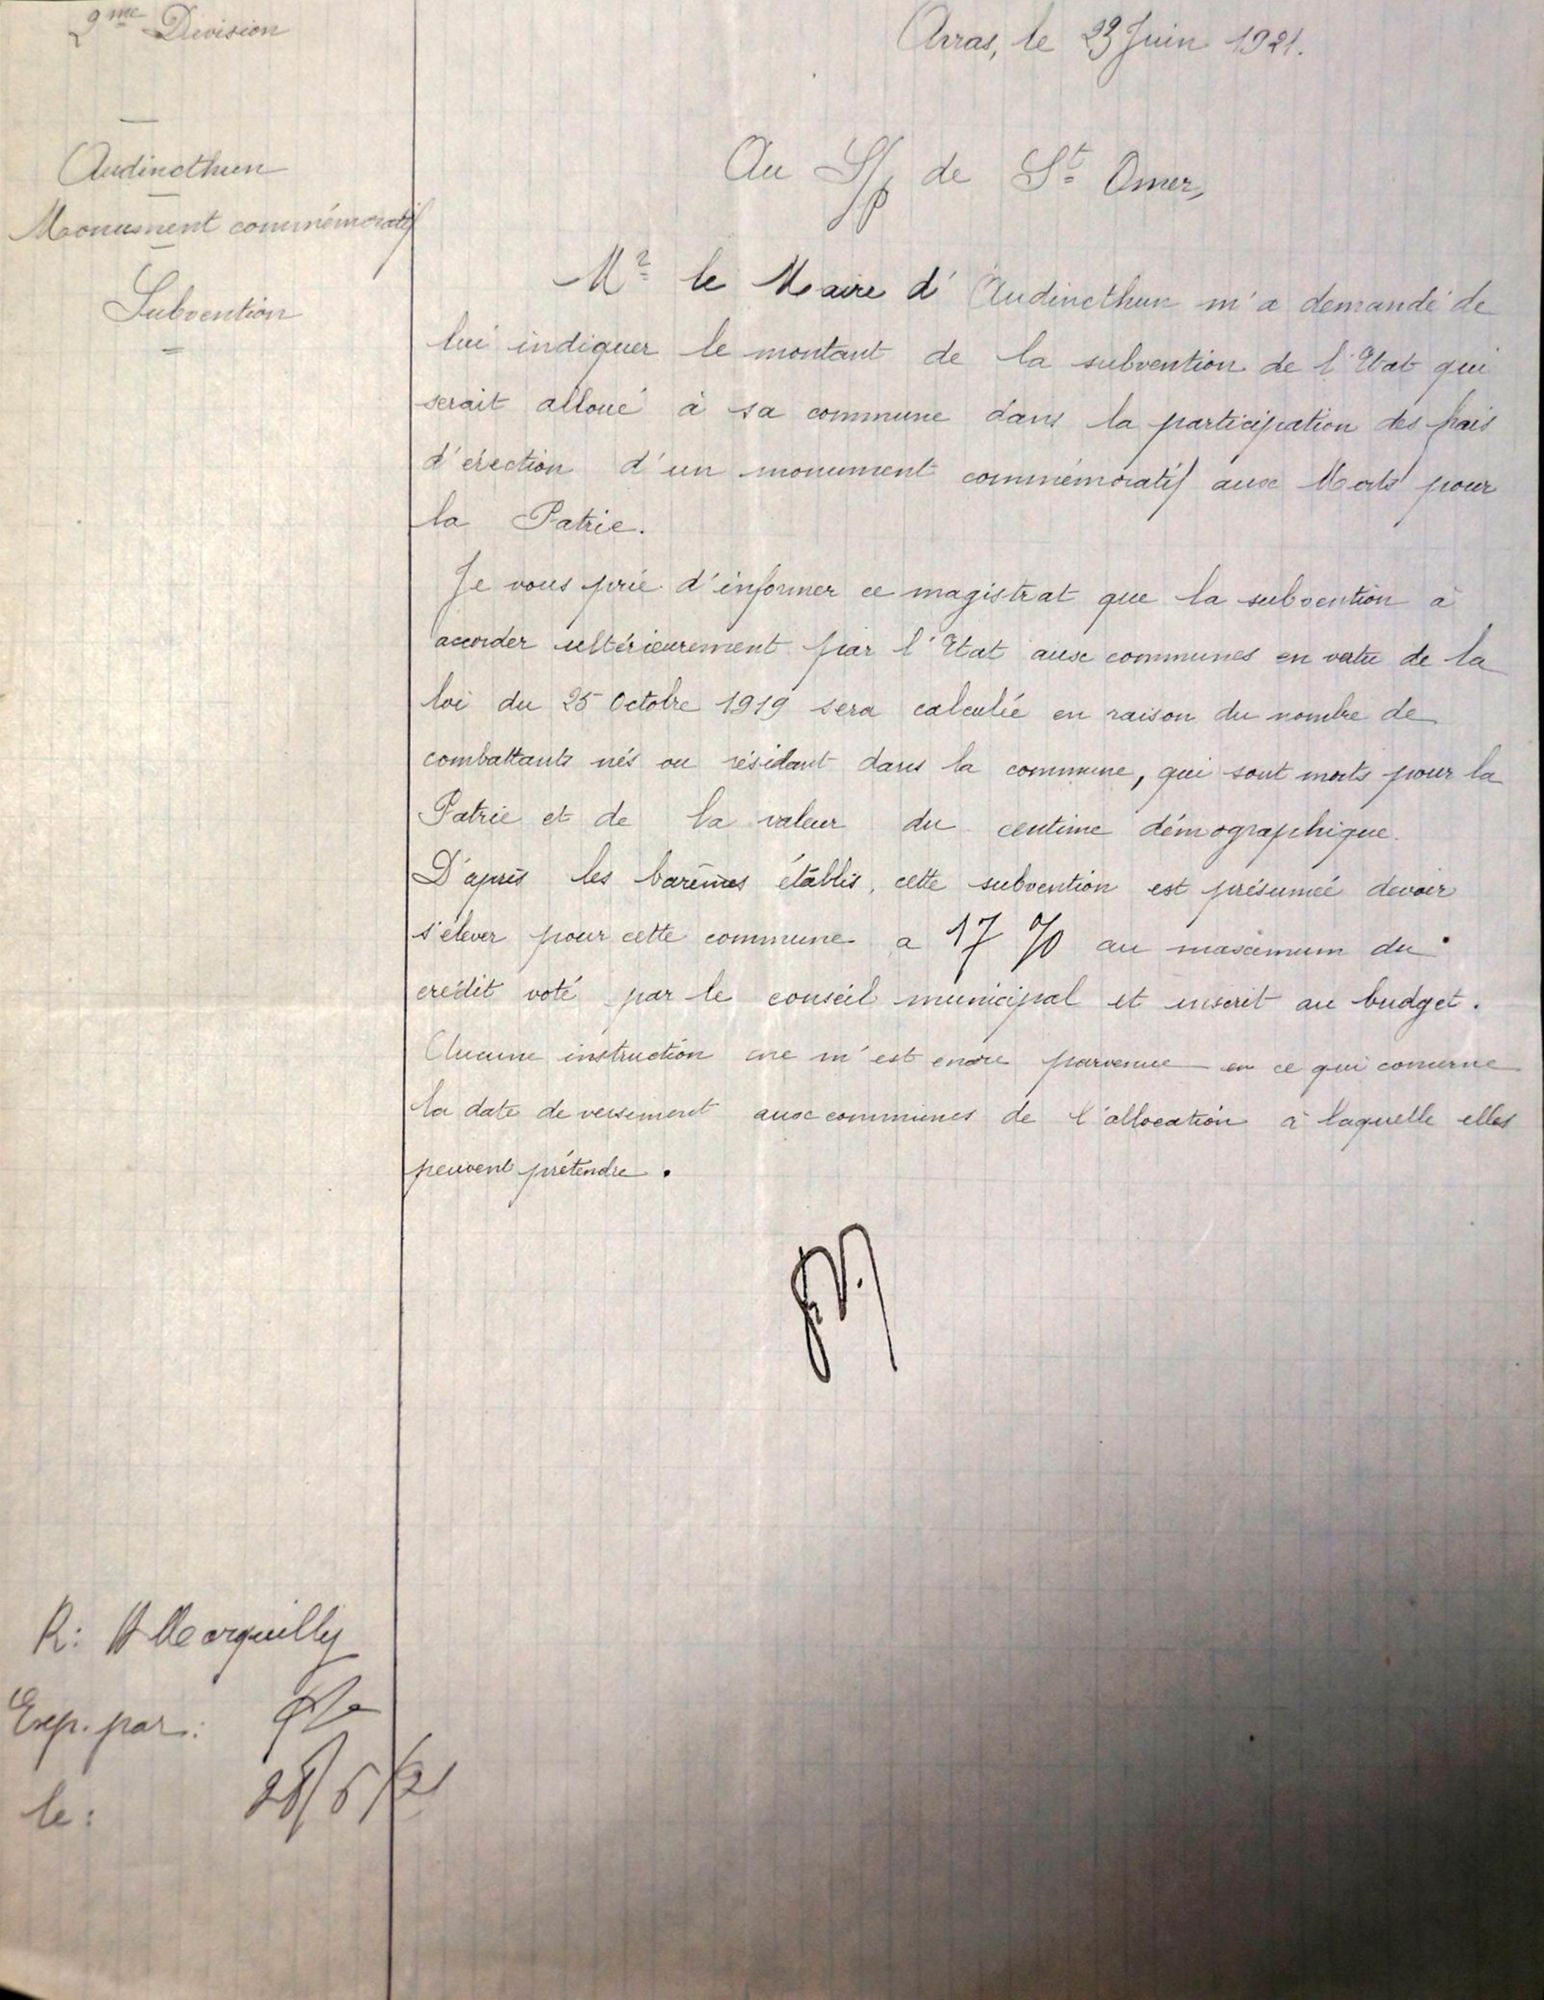 2me Division
Arras, le 23 Juin 1921.
Audincthun
Monument commémoratif
Subvention
Au S/p de St Omer,
Mr le Maire d'Audincthun m'a demandé de
lui indiquer le montant de la subvention de l'Etat qui
serait alloué à sa commune dans la participation des frais
d'érection d'un monument commémoratif aux Morts pour
la Patrie.
Je vous prie d'informer ce magistrat que la subvention à
accorder ultérieurement par l'Etat aux communes en vertu de la
loi du 25 Octobre 1919 sera calculée en raison du nombre de
combattants nés ou résidant dans la commune, qui sont morts pour la
Patrie et de la valeur du centime démographique.
D'après les barêmes établis, cette subvention est présumée devoir
s'élever pour cette commune a 17 % au maximum du
crédit voté par le conseil municipal et inscrit au budget.
Aucune instruction ne m'est encore parvenue en ce qui concerne
la date de versement aux communes de l'allocation à laquelle elles
peuvent prétendre.
R: Marquilly
Exp. par:
le: 28/6/21